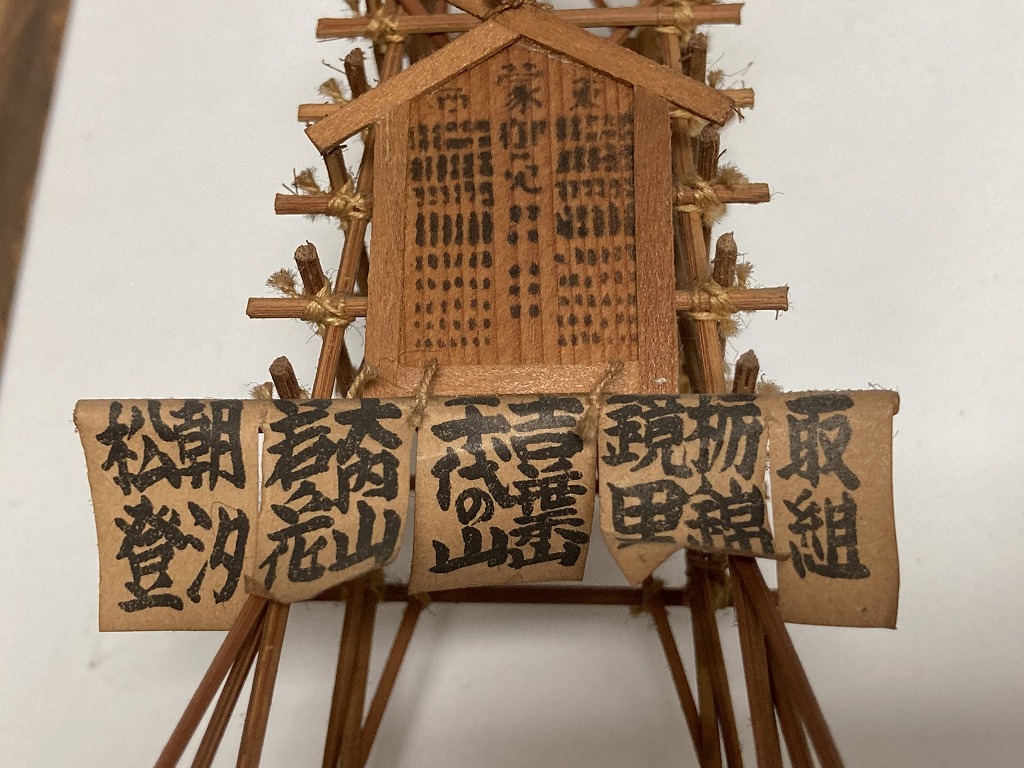 東
蒙御免
西
取組
栃錦
鏡里
吉葉山
千代の山
大内山
若乃花
朝汐
松登